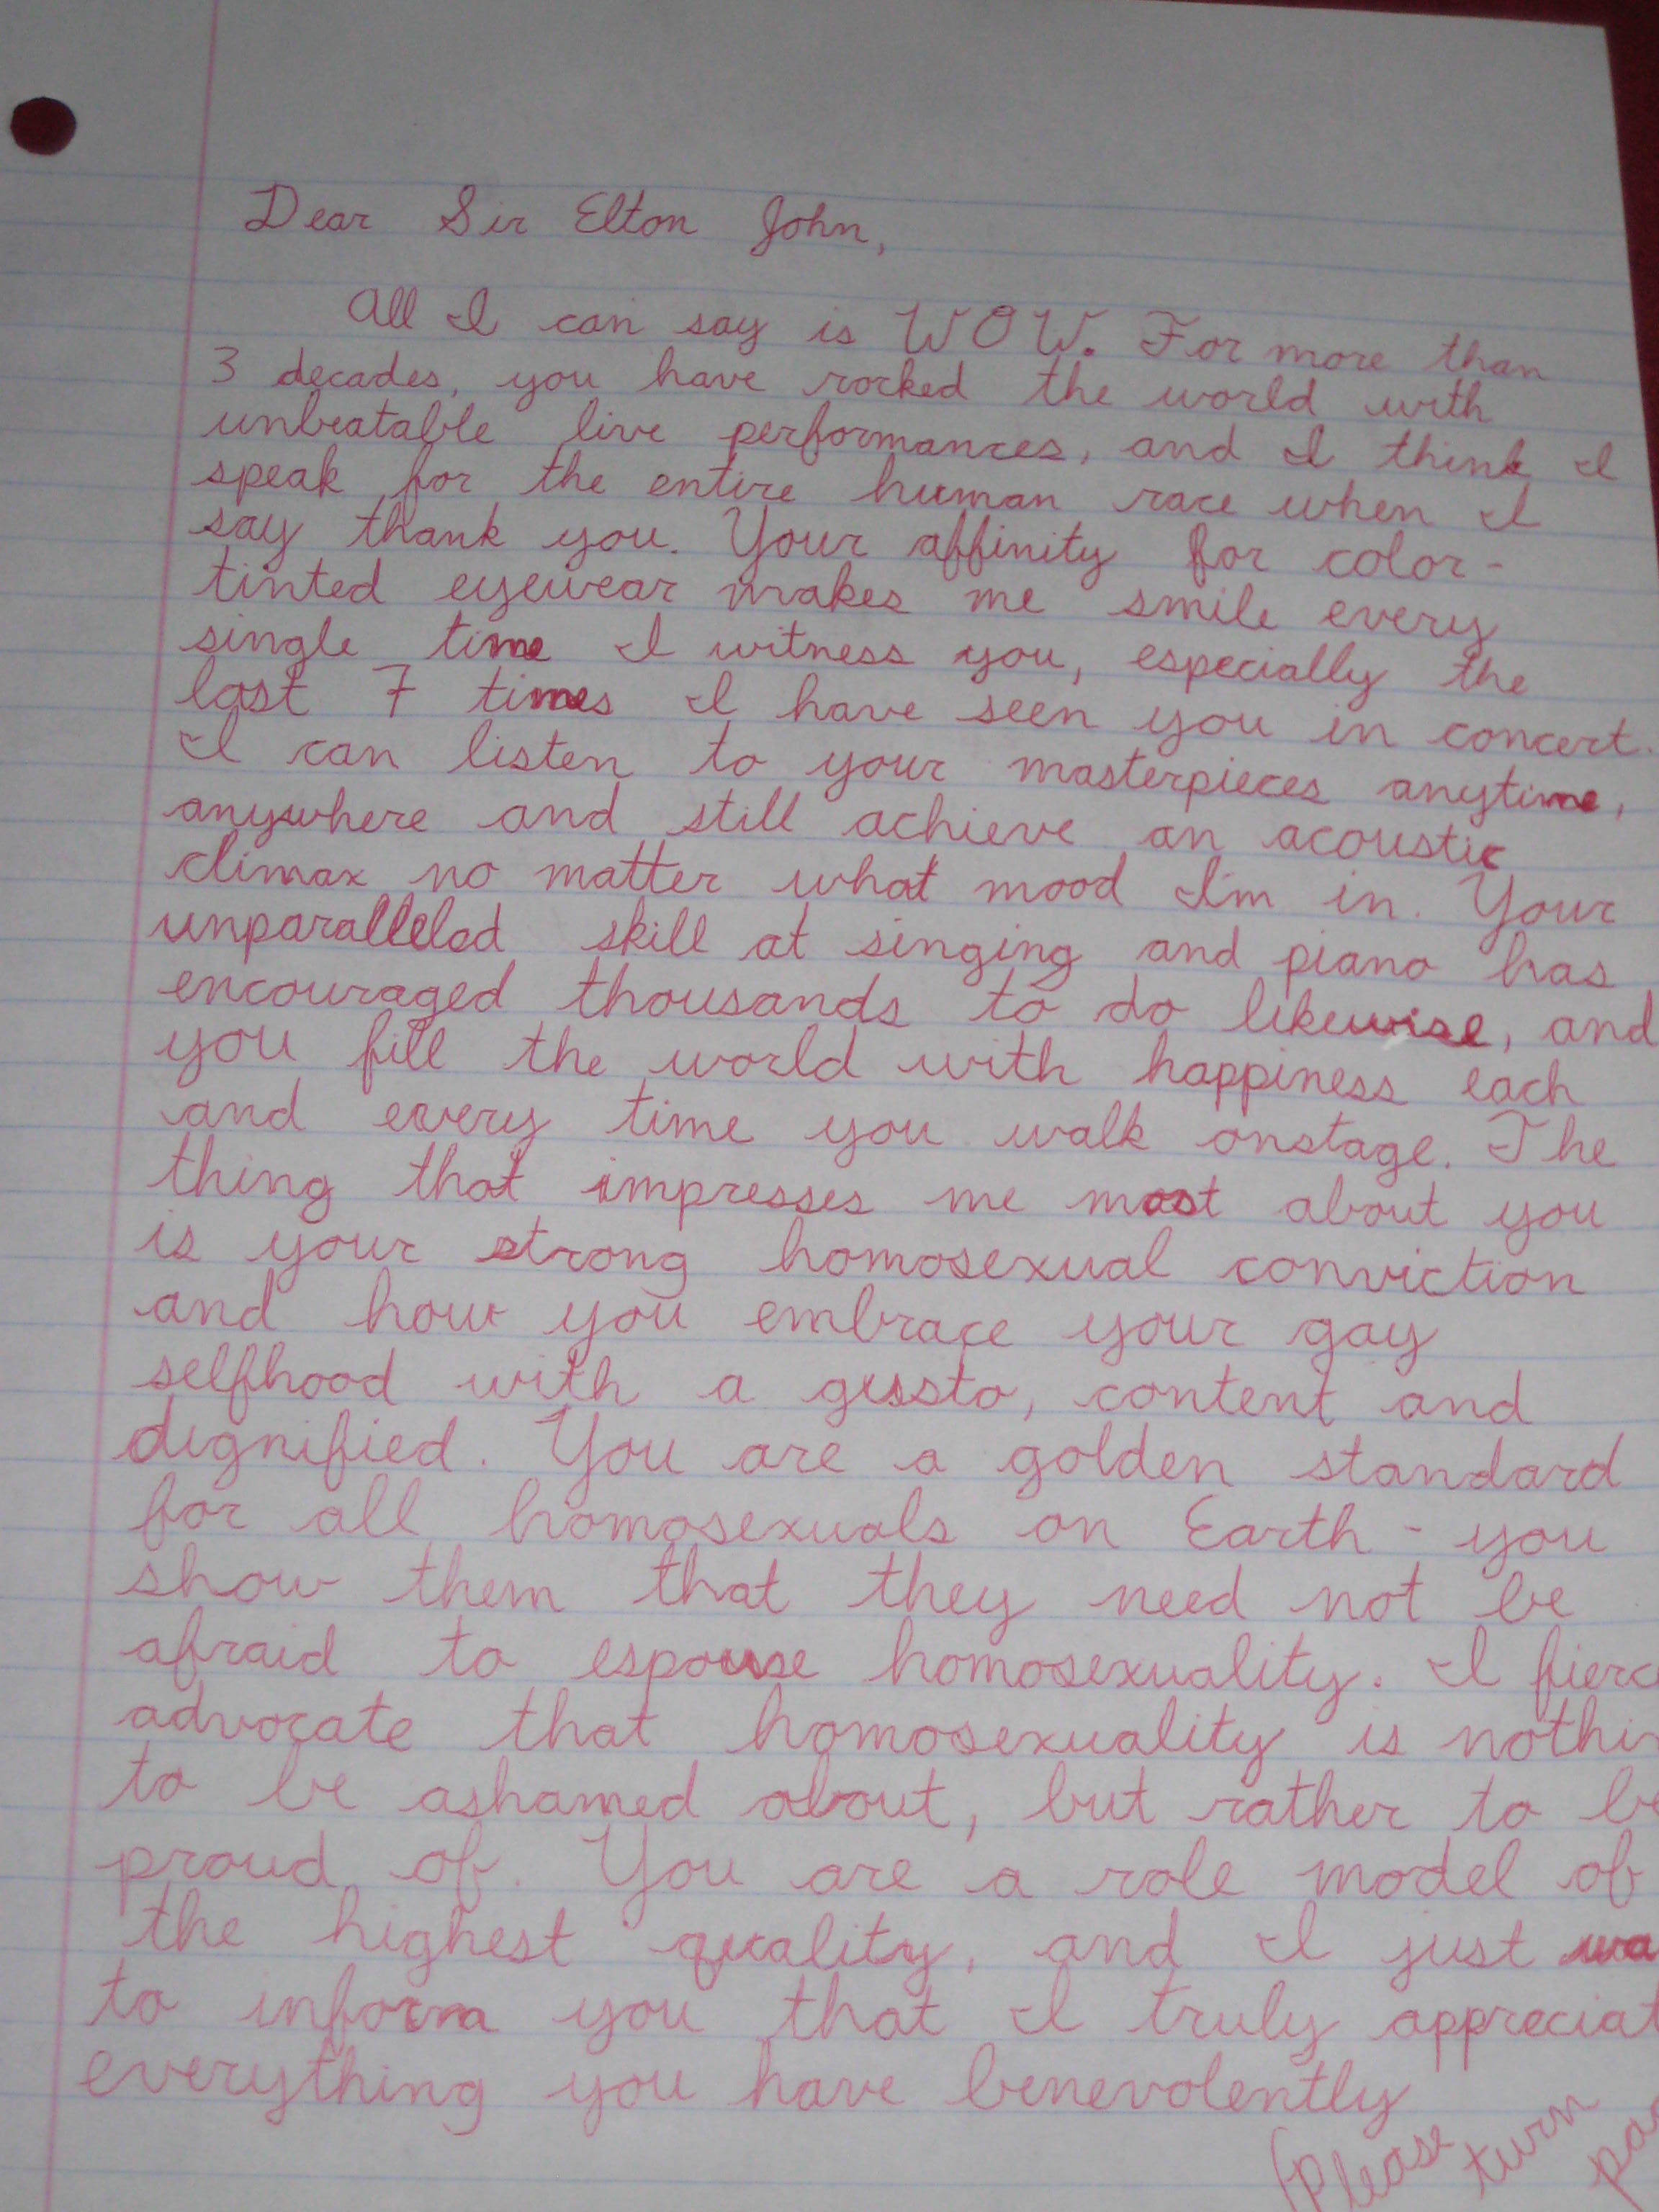 Dear Sir Elton John,
All I can say is WOW. For more than
3 decades, you have rocked the world with
unbeatable live performances, and I think I
speak for the entire human race when I
say thank you. Your affinity for color-
tinted eyewear makes me smile every
single time I witness you, especially the
last 7 times I have seen you in concert.
I can listen to your masterpieces anytime,
anywhere and still achieve an acoustic
climax no matter what mood I'm in. Your
unparalleled skill at singing and piano has
encouraged thousands to do likewise, and
you fill the world with happiness each
and every time you walk onstage. The
thing that impresses me most about you
is your strong homosexual conviction
and how you embrace your gay
selfhood with a gussto, content and
dignified. You are a golden standard
for all homosexuals on Earth - you
show them that they need not be
afraid to espouse homosexuality. I fierc
advocate that homosexuality is nothin
to be ashamed about, but rather to be
proud of. You are a role model of
the highest quality, and I just wa
to inform you that I truly appreciat
everything you have benevolently
(Please turn pa